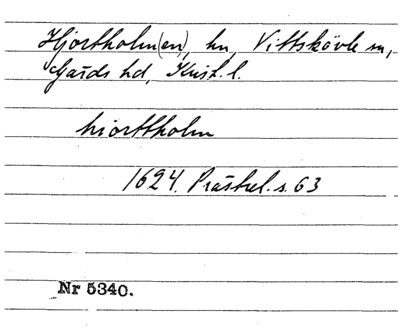 Hjortholm(en), hn, Vittskövle sn,
Gärds hd, Krist. l.
hiorttholm
1624. Prästrel. s. 63
Nr 5340.